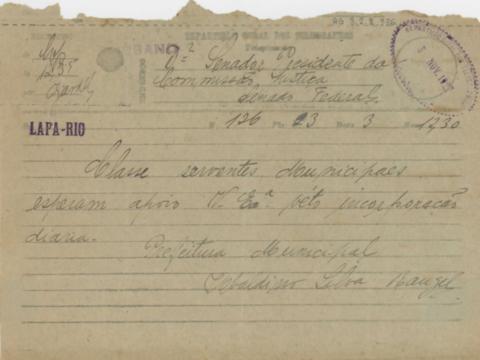 REPARTIÇÃO GERAL DOS TELEGRAPHOS
Eº Senador Presidente da
Commissão Justiça
Senado Federal
LAPA-RIO
Nº 126 Pls 23 Hora 3 1930
Classe serventes Municipaes
esperam apoio V. Exª véto incorporação
diaria.
Prefeitura Municipal
Silva Rangel